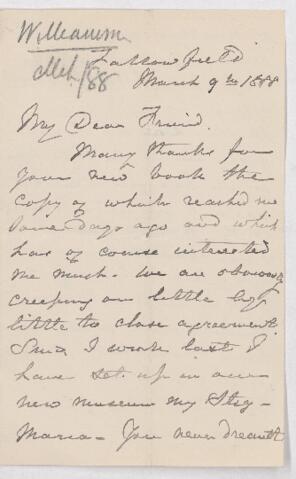 Williamson
Mch/88
Fallowfield
March 9th 1888
My Dear Friend.
Many thanks for
your new book the
copy of which reached me
some days ago and which
has of course interested
me much. We are obviously
creeping on little by
little to close agreement.
Since I wrote last I
have set up in our
new museum my Stig-
maria. You never dreamt